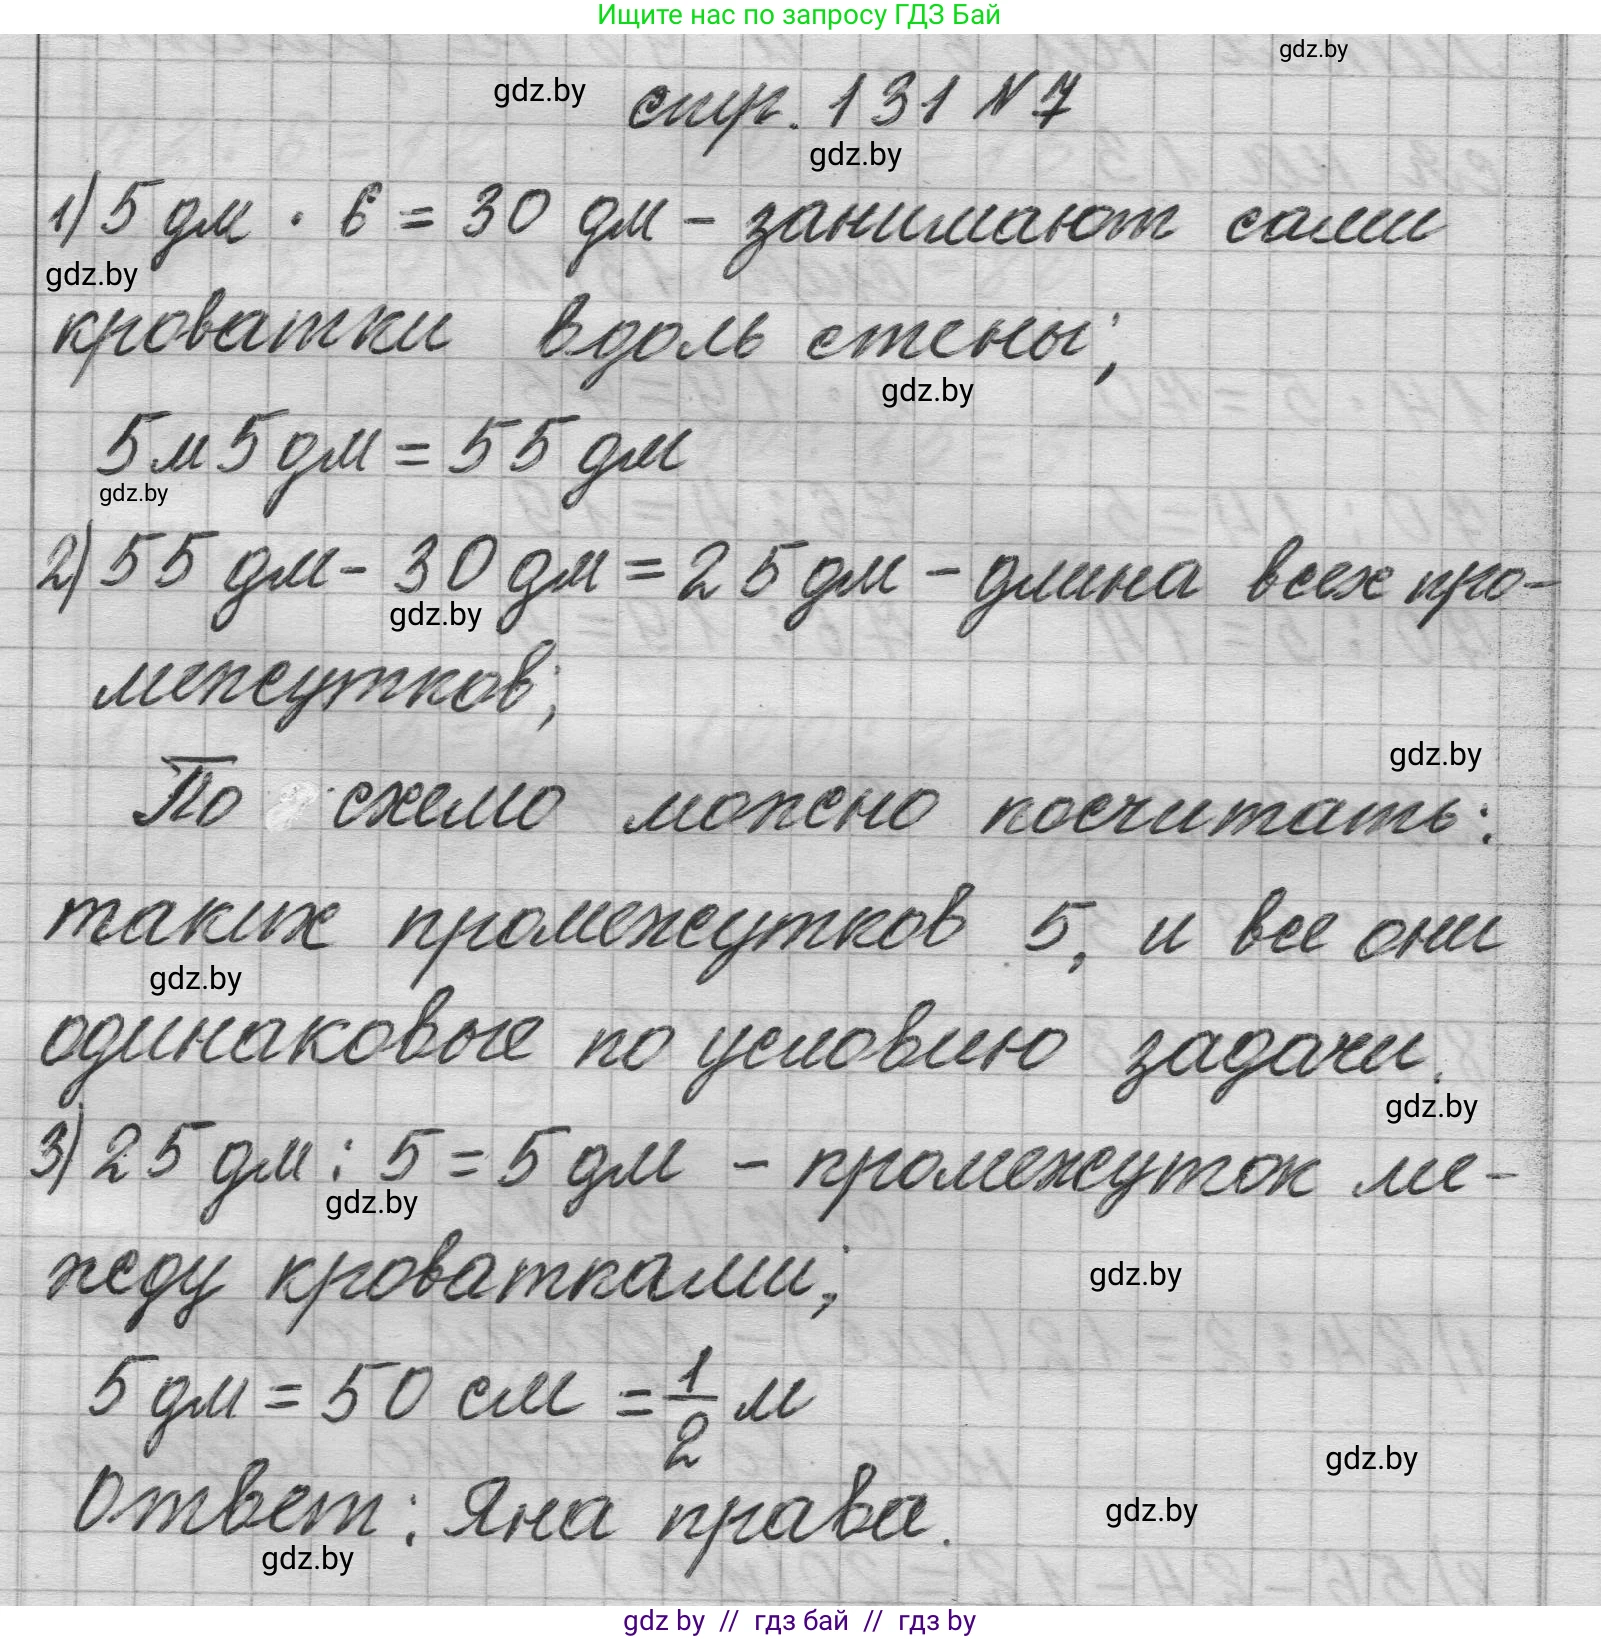 Ищите нас по запросу ГДЗ Бай
gdz.by
gdz.by
стр. 131 №7
gdz.by
1) 5 дм · 6 = 30 дм - занимают сами
gdz.by
кроватки вдоль стены;
gdz.by
5м 5дм = 55 дм
gdz.by
2) 55 дм - 30 дм = 25 дм - длина всех про-
gdz.by
межутков;
gdz.by
По схемо можно посчитать:
таких промежутков 5, и все они
gdz.by
одинаковые по условию задачи.
gdz.by
3) 25 дм : 5 = 5 дм - промежуток ме-
gdz.by
жду кроватками;
gdz.by
5 дм = 50 см = 1/2 м
gdz.by
Ответ: Яна права.
gdz.by
gdz.by
gdz by // гдз бай // гдз by